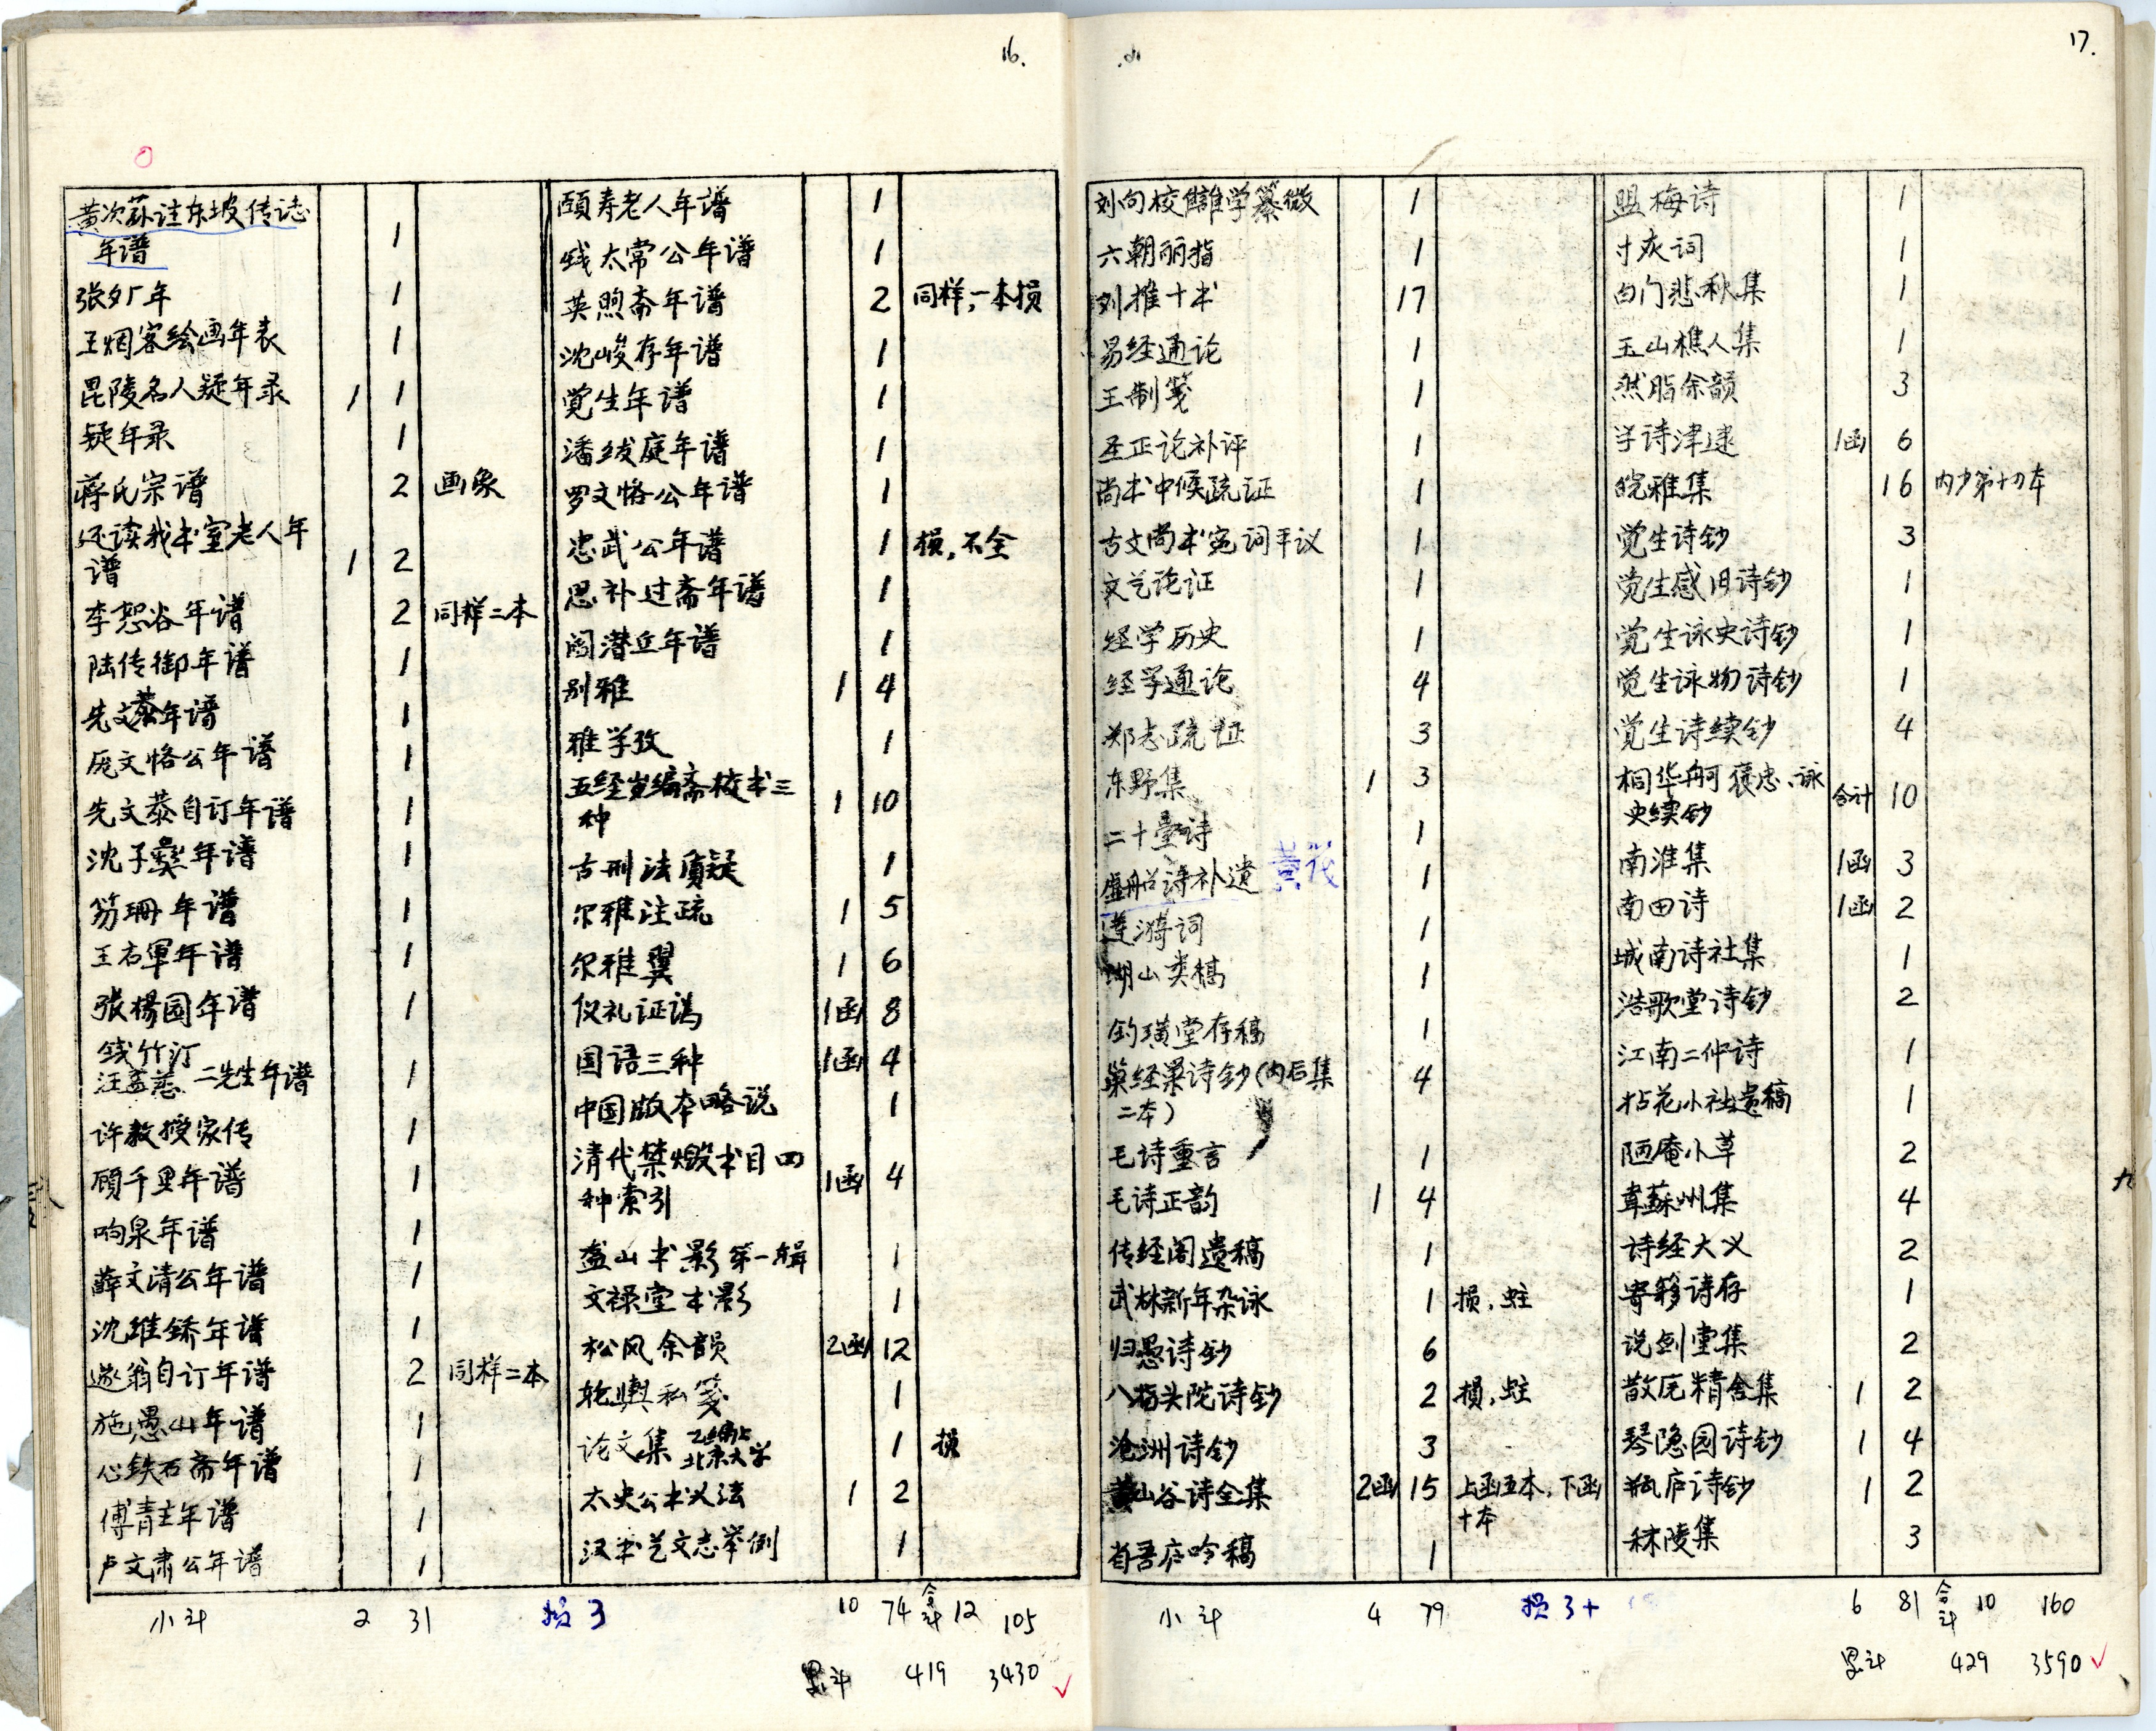 16.
黄次荪注东坡传志
年谱 1
张夕厂年 1
王烟客绘画年表 1
毘陵名人疑年录 1 1
疑年录 1
蒋氏宗谱 2 画象
还读我书室老人年
谱 1 2
李恕谷年谱 2 同样二本
陆传御年谱 1
先文恭年谱 1
庞文恪公年谱 1
先文恭自订年谱 1
沈子彝年谱 1
笏珊年谱 1
王右軍年谱 1
张杨园年谱 1
钱竹汀
汪孟慈 二先生年谱 1
许教授家传 1
顾千里年谱 1
响泉年谱 1
薛文清公年谱 1
沈维鐈年谱 1
遂翁自订年谱 2 同样二本
施愚山年谱 1
心铁石斋年谱 1
傅青主年谱 1
卢文肃公年谱 1
小计 2 31
损3
颐寿老人年谱 1
钱太常公年谱 1
英煦斋年谱 2 同样,一本损
沈峻存年谱 1
觉生年谱 1
潘绂庭年谱 1
罗文恪公年谱 1
忠武公年谱 1 损,不全
思补过斋年谱 1
阎潜丘年谱 1
别雅 1 4
雅学攷 1
五经岁编斋校书三
种 1 10
古刑法质疑 1
尔雅注疏 1 5
尔雅翼 1 6
仪礼证讹 1函 8
国语三种 1函 4
中国版本略说 1
清代禁燬书目四
种索引 1函 4
盋山书影第一辑 1
文禄堂书影 1
松风余韻 2函 12
轮舆私笺 1
论文集 北京大学 1 损
太史公书义法 1 2
汉书艺文志举例 1
10 74 合计 12 105
累计 419 3430 ✓
17.
刘向校雠学纂微 1
六朝丽指 1
刘推十书 17
易经通论 1
王制笺 1
圣正论补评 1
尚书中候疏证 1
古文尚书宽词平议 1
文艺论证 1
经学历史 1
经学通论 4
郑志疏证 3
东野集 1 3
二十壘诗 1
虚船诗补遗 黄茂 1
莲漪词 1
湖山类稿 1
钓璜堂存稿 1
巢经巢诗钞(内后集
二本) 4
毛诗重言 1
毛诗正韵 1 4
传经阁遗稿 1
武林新年杂咏 1 损,蛀
归愚诗钞 6
八指头陀诗钞 2 损,蛀
沧洲诗钞 3
黄山谷诗全集 2函 15 上函五本,下函
十本
省吾庐吟稿 1
小计 4 79
损3+
盟梅诗 1
寸灰词 1
白门悲秋集 1
玉山樵人集 1
然脂余韻 3
学诗津逮 1函 6
皖雅集 16 内少第十刀本
觉生诗钞 3
觉生感旧诗钞 1
觉生咏史诗钞 1
觉生咏物诗钞 1
觉生诗续钞 4
桐华舸褒忠、詠
史续钞 合计 10
南淮集 1函 3
南田诗 1函 2
城南诗社集 1
浩歌堂诗钞 2
江南二仲诗 1
拈花小社遗稿 1
陋庵小草 2
韋蘇州集 4
诗经大义 2
寄簃诗存 1
说剑堂集 2
散原精舍集 1 2
琴隐园诗钞 1 4
瓶庐诗钞 1 2
秣陵集 3
6 81 合计 10 160
累计 429 3590 ✓